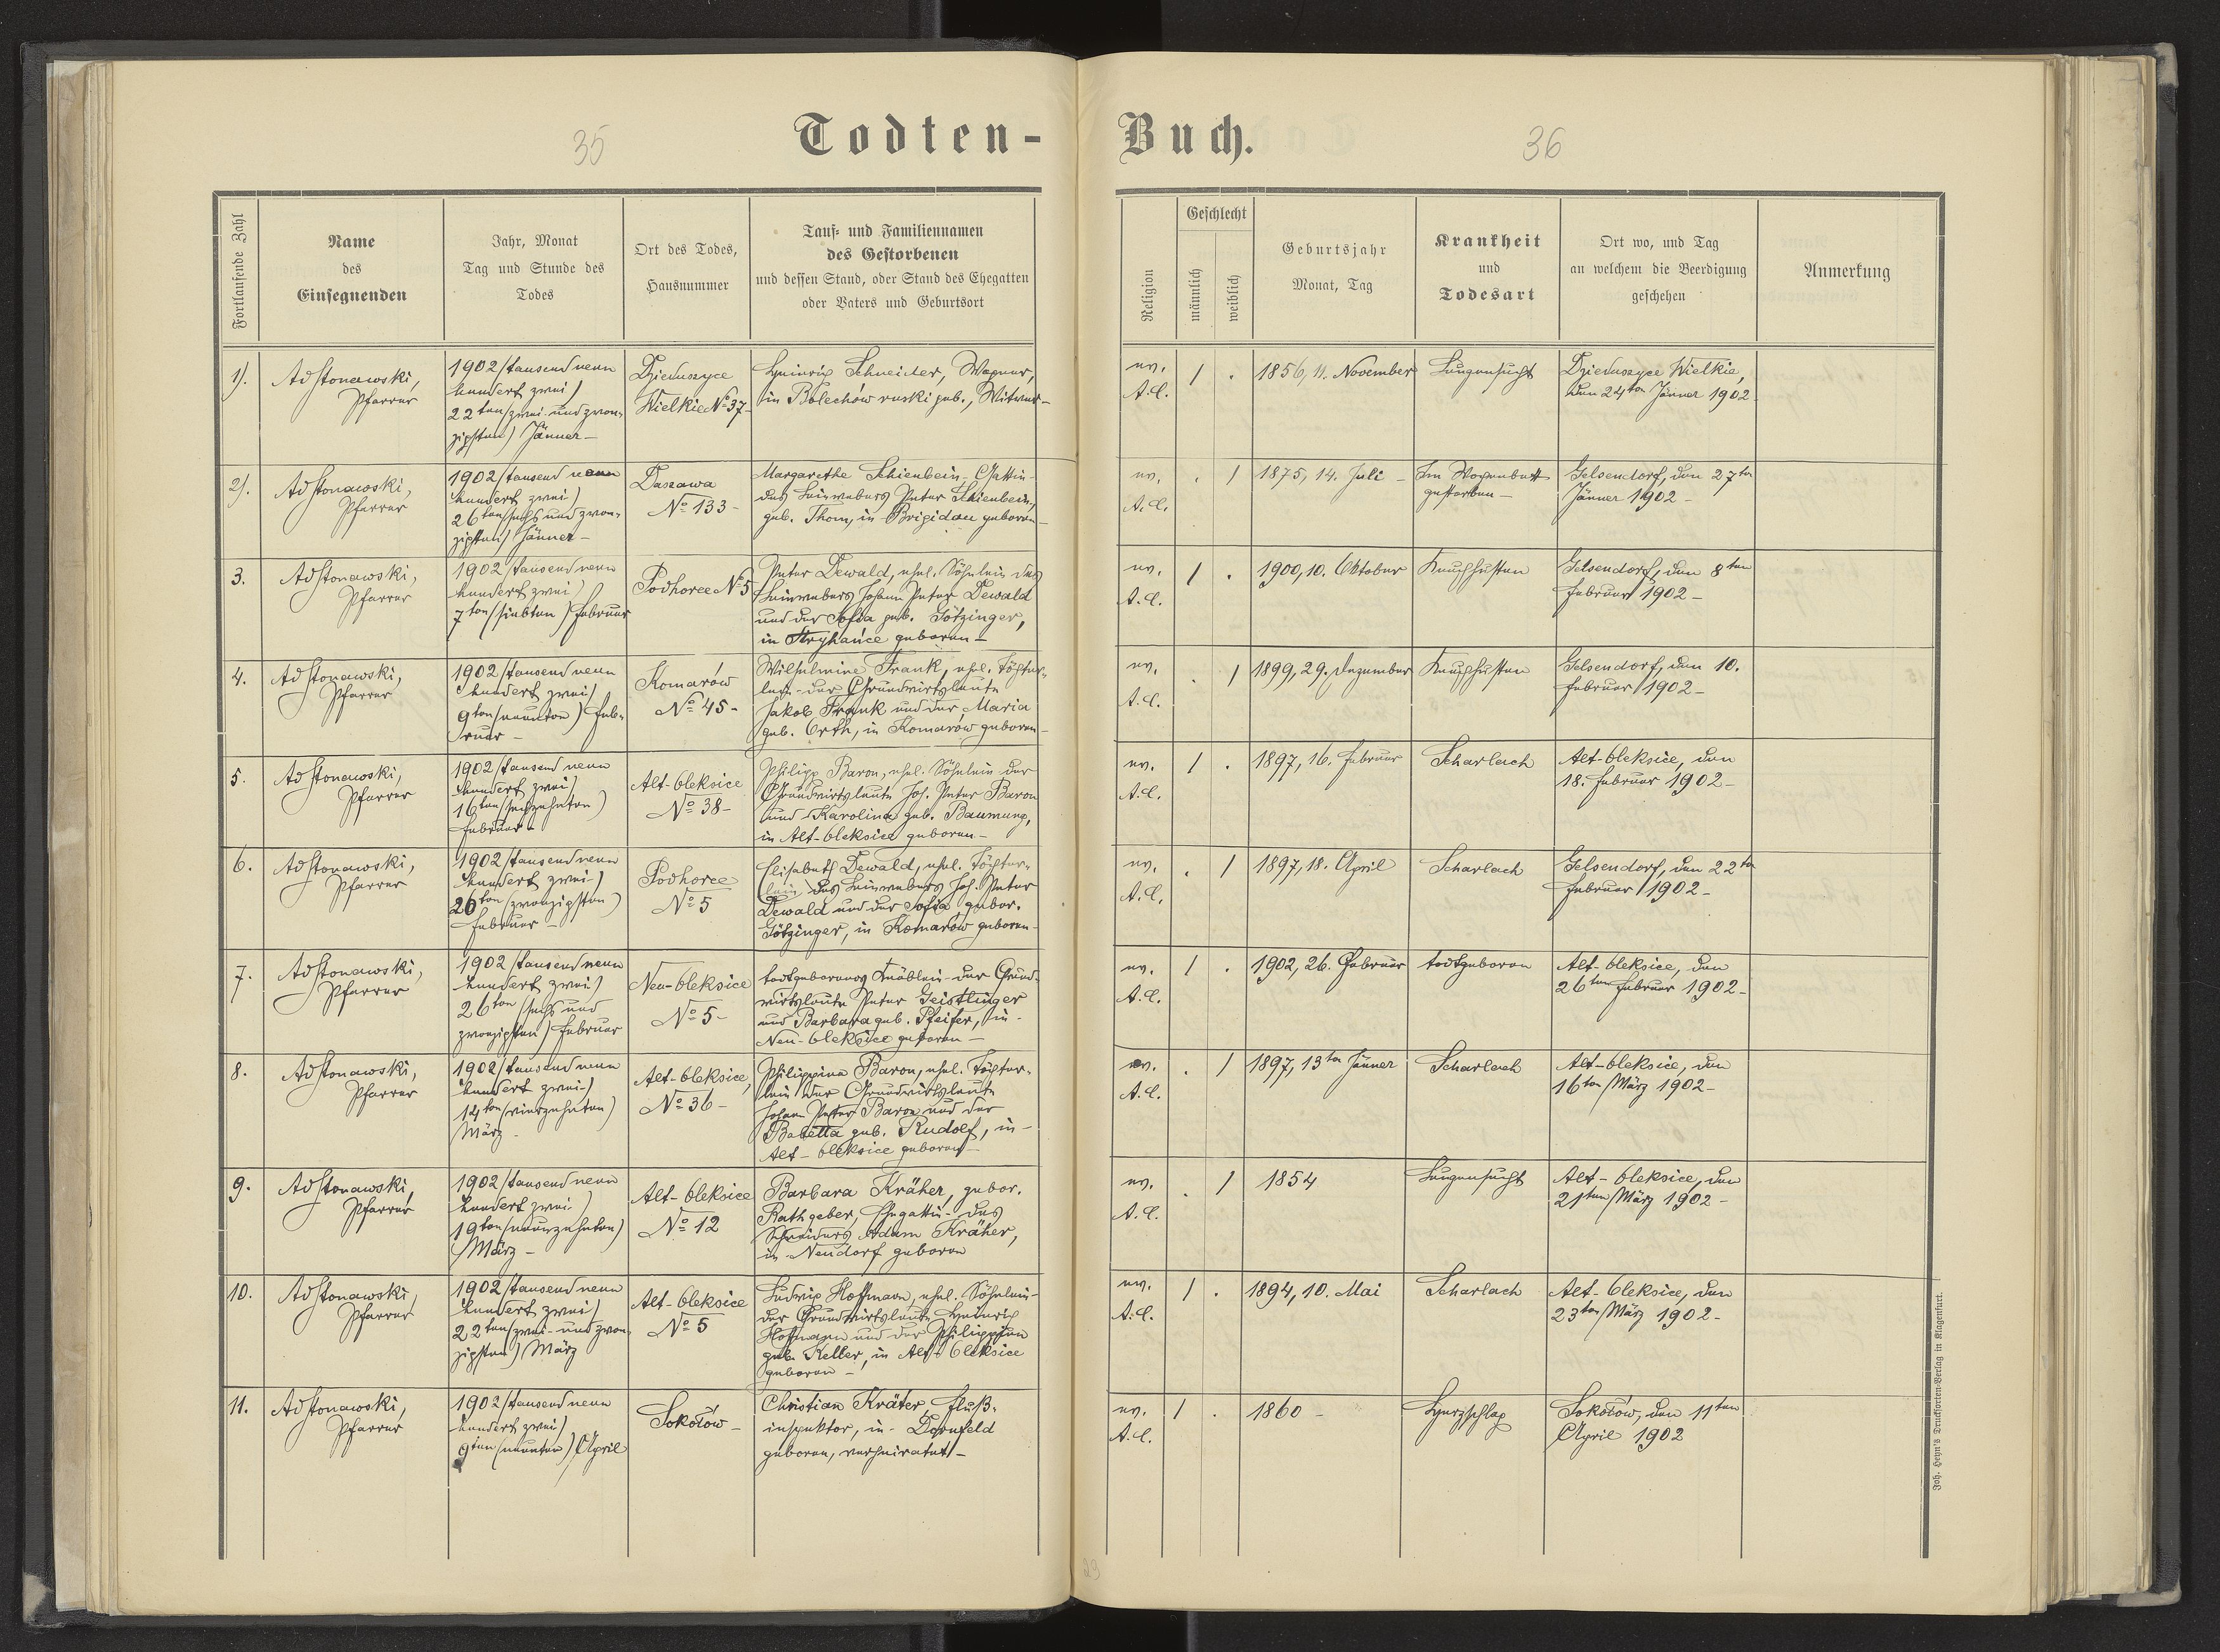 35
Todten-
Buch.
36
Fortlaufende Zahl
Name
des
Einsegnenden
Jahr, Monat
Tag und Stunde des
Todes
Ort des Todes,
Hausnummer
Tauf- und Familiennamen
des Gestorbenen
und dessen Stand, oder Stand des Ehegatten
oder Vaters und Geburtsort
Religion
Geschlecht
männlich
weiblich
Geburtsjahr
Monat, Tag
Krankheit
und
Todesart
Ort wo, und Tag
an welchem die Beerdigung
geschehen
Anmerkung
1).
Pfarrer
1902 (tausend neun
hundert zwei)
22ten (zwei und zwan-
zigsten) Jänner -
Dzieduszyce
Wielkie No 37-
Heinrich Schneider, Wagner,
in Bolechów ruski geb., Witwer-
ev.
A.C.
1 .
1856, 11. November
Lungensucht
Dzieduszyce Wielkie,
den 24ten Jänner 1902
2).
Pfarrer
1902 (tausend neun
hundert zwei)
26ten (sechs und zwan-
zigsten) Jänner -
Daszawa
No 133-
Margarethe Schienbein, Gattin
des Leinwebers Peter Schienbein,
geb. Thom, in Brigidau geboren-
ev.
A.C.
. 1
1875, 14. Juli -
Im Wochenbett
gestorben -
Gelsendorf, den 27ten
Jänner 1902 -
3.
Pfarrer
1902 (tausend neun
hundert zwei)
7ten (siebten) Februar
Podhorce No 5
Peter Dewald, ehel. Söhnlein des
Leinwebers Johann Peter Dewald
und der Sofia geb. Götzinger,
in Stryhańce geboren -
ev.
A.C.
1 .
1900, 10. Oktober
Keuchhusten
Gelsendorf, den 8ten
Februar 1902 -
4.
Pfarrer
1902 (tausend neun
hundert zwei)
9ten (neunten) Feb-
ruar -
Komarów
No 45-
Wilhelmine Frank, ehel. Töchter-
lein der Grundwirtsleute
Jakob Frank und der Maria
geb. Orth, in Komarów geboren-
ev.
A.C.
. 1
1899, 29. Dezember
Keuchhusten
Gelsendorf, den 10.
Februar 1902 -
5.
Pfarrer
1902 (tausend neun
hundert zwei)
16ten (sechzehnten)
Februar -
Alt-Oleksice
No 38-
Philipp Baron, ehel. Söhnlein der
Grundwirtsleute Joh. Peter Baron
und Karolina geb. Baumung,
in Alt-Oleksice geboren -
ev.
A.C.
1 .
1897, 16. Februar
Scharlach
Alt-Oleksice, den
18. Februar 1902 -
6.
Pfarrer
1902 (tausend neun
hundert zwei)
20ten (zwanzigsten)
Februar -
Podhorce
No 5
Elisabeth Dewald, ehel. Töchter-
lein des Leinwebers Joh. Peter
Dewald und der Sofia gebor.
Götzinger, in Komarów geboren-
ev.
A.C.
. 1
1897, 18. April
Scharlach
Gelsendorf, den 22ten
Februar 1902 -
7.
Pfarrer
1902 (tausend neun
hundert zwei)
26ten (sechs und
zwanzigsten) Februar
Neu-Oleksice
No 5-
todtgeborenes Knäblein der Grund-
wirtsleute Peter Geistlinger
und Barbara geb. Pfeifer, in
Neu-Oleksice geboren -
ev.
A.C.
1 .
1902, 26. Februar
todtgeboren
Alt-Oleksice, den
26ten Februar 1902 -
8.
Pfarrer
1902 (tausend neun
hundert zwei)
14ten (vierzehnten)
März -
Alt-Oleksice,
No 36-
Philippina Baron, ehel. Töchter-
lein der Grundwirtsleute
Johann Peter Baron und der
Babetta geb. Rudolf, in -
Alt-Oleksice geboren -
ev.
A.C.
. 1
1897, 13ten Jänner
Scharlach
Alt-Oleksice, den
16ten März 1902 -
9.
Pfarrer
1902 (tausend neun
hundert zwei)
19ten (neunzehnten)
März -
Alt-Oleksice
No 12
Barbara Kräher, gebor.
Rathgeber, Ehegattin des
Schneiders Adam Kräher,
in Neudorf geboren
ev.
A.C.
. 1
1854
Lungensucht
Alt-Oleksice, den
21ten März 1902 -
10.
Pfarrer
1902 (tausend neun
hundert zwei)
22ten (zwei und zwan-
zigsten) März
Alt-Oleksice
No 5
Ludwig Hoffmann, ehel. Söhnlein
der Grundwirtsleute Heinrich
Hoffmann und der Philippina
geb. Keller, in Alt-Oleksice
geboren -
ev.
A.C.
1 .
1894, 10. Mai
Scharlach
Alt-Oleksice, den
23ten März 1902 -
11.
Pfarrer
1902 (tausend neun
hundert zwei)
9ten (neunten) April
Sokołów -
Christian Kräter, Fluß-
inspektor, in Dornfeld
geboren, verheiratet -
ev.
A.C.
1 .
1860 -
Herzschlag
Sokołów, den 11ten
April 1902
Joh. Heyn's Drucksorten-Verlag in Klagenfurt.
29